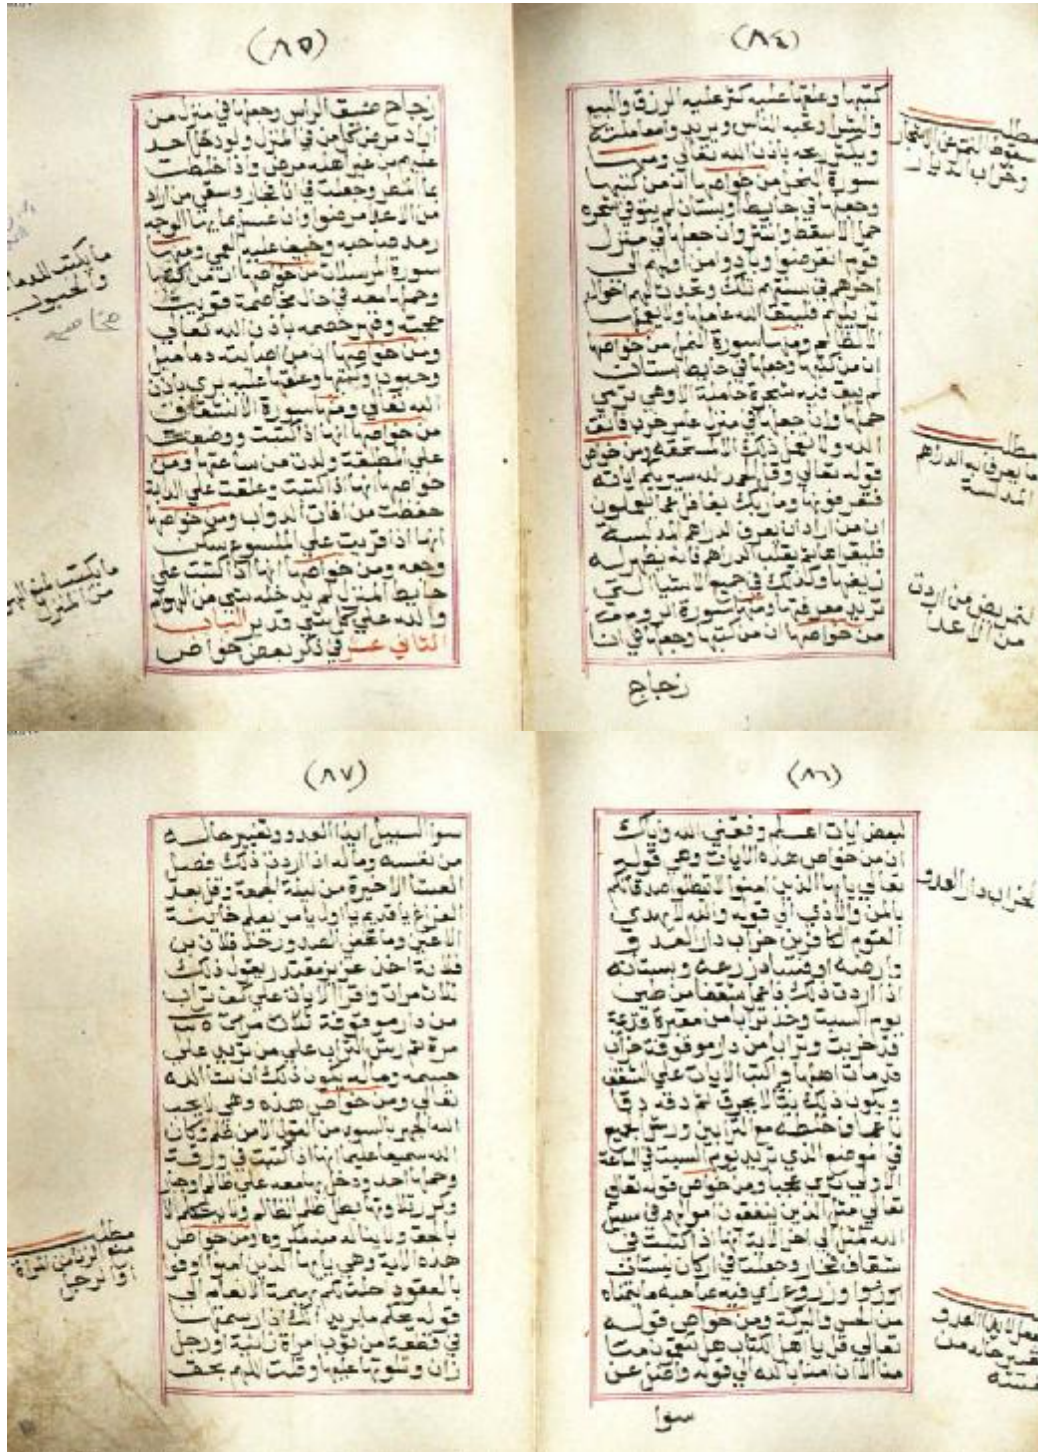 (٨٤)
كتبها وعلقها عليه كثر عليه الرزق والبيع
والشرا ورغبه الناس ويريد وامعاملته
ويكثر ربحه باذن الله تعالي ومنها
سورة النحل من خواصها ان من كتبها
وجعلها في حايط او بستان لم يبق فيه شجره
حملا الا سقط وانتثر وان جعلها في منزل
قوم انقرضوا وبادوا من اولهم الى
اخرهم في سنتهم تلك وتحدث لهم احوال
تزيلهم فليتق الله عاملها ولا يعملها
الا لظالم ومنها سورة النمل من خواصها
ان من كتبها وجعلها في حايط بستان
لم يبق فيه شجرة حاملة الا وهي ترمي
حملها وان جعلها في منزل عدو خرب فاتق
الله ولا تعمل ذلك الا لمستحقه ومن خواص
قوله تعالي وقل الحمد لله سيريكم اياته
فتعرفونها وما ربك بغافل عما تعملون
ان من اراد ان يعرف الدراهم المدلسة
فليقراها ثم يقلب الدراهم فانه يظهر له
زيفها وكذلك في جميع الاشيا التي
تريد معرفتها ومنها سورة
من خواصها ان من كتبها وجعلها في انا
زجاج
مطلب
سقوط الثمر من الاشجار
وخراب الديار
مطلب
ما يعرف به الدراهم
المدلسة
لتمريض من اردت
من الاعدا
(٨٥)
زجاج ضيق الراس وجعلها في منزل من
اراد مرض كل من في المنزل ولو دخل احد
عليهم من غير اهله مرض واذا خلطت
بما المطر وجعلت في انا فخار وسقي من اراد
من الاعدا مرضوا وان غسل بمايها الوجه
رمد صاحبه وخيف عليه العمي ومنها
سورة المرسلات من خواصها ان من كتبها
وحملها معه في حال مخاصمة قويت
حجته وقهر خصمه باذن الله تعالي
ومن خواصها ان من اصابته دماميل
وحبوب وكتبها وعلقها عليه بري باذن
الله تعالي ومنها سورة الانشقاق
من خواصها انها اذا كتبت ووضعت
علي المطلقة ولدت من ساعتها ومن
خواصها انها اذا كتبت وعلقت علي الدابة
حفظت من افات الدواب ومن خواصها
انها اذا قريت علي الملسوع سكن
وجعه ومن خواصها انها اذا كتبت علي
حايط المنزل لم يدخله شي من الهوام
والله علي كل شي قدير الباب
الثاني عشر في ذكر بعض خواص
ما يكتب للدماميل
والحبوب
مخاصمه
ما يكتب لمنع الهوام
من المنزل
(٨٦)
لبعض ايات اعلم وفقني الله واياك
ان من خواص هذه الايات وهي قوله
تعالي يا ايها الذين امنوا لا تبطلوا صدقاتكم
بالمن والاذي الي قوله والله لا يهدي
القوم الكافرين خراب دار العدو
وارضه او فساد زرعه وبستانه
اذا اردت ذلك فاعمل شقفا من طين
يوم السبت وخذ ترابا من مقبرة
قد خربت وترابا من دار موقوفة خراب
قد مات اهلها واكتب الايات علي الشقف
ويكون ذلك نيا لا يحرق ثم دقه دقا
ناعما واخلطه مع الترابين ورش الجميع
في الموضع الذي تريد يوم السبت في الساعة
الاولي تري عجبا ومن خواص قوله تعالي
تعالي مثل الذين ينفقون اموالهم في سبيل
الله كمثل الي اخر الاية انها اذا كتبت في
شقاف فخار وجعلت في اركان بستان
او زرع راي فيه صاحبه ما يتمناه
من الحسن والبركة ومن خواص قوله
تعالي قل يا اهل الكتاب هل تنقمون منا
منا الا ان امنا بالله الي قوله واضل عن
سوا
لخراب دار العدو
عمل لايذا العدو
وتغيير حاله من
نفسه
(٨٧)
سوا السبيل ايذا العدو وتغيير حاله
من نفسه وماله اذا اردت ذلك فصل
العشا الاخيرة من ليلة الجمعة وقل بعد
الفراغ يا قديم يا اول يا من يعلم خاينة
الاعين وما تخفي الصدور خذ فلان بن
فلانة اخذ عزيز مقتدر يقول ذلك
ثلاث مرات واقرا الايات علي كف تراب
من دار موقوفة ثلاث مرات
مرة ثم رش التراب علي من تريد علي
جسمه وماله يكون ذلك ان شا الله
تعالي ومن خواص هذه وهي لا يحب
الله الجهر بالسوء من القول الا من ظلم وكان
الله سميعا عليما انها اذا كتبت في ورقة
وحملها احد ودخل بها معه علي ظالم
وكرر تلاوتها بطل ظلم الظالم ولا يتكلم الا
بالحق ولا يناله منه مكروه ومن خواص
هذه الاية وهي يا ايها الذين امنوا اوفوا
بالعقود احلت لكم بهيمة الانعام الي
قوله يحكم ما يريد انك اذا رسمتها
في قطعة من ثوب امراة زانية او رجل
زان وتلوتها عليها وقلت اللهم بحق
مطلب
منع الزنا من المراة
او الرجل